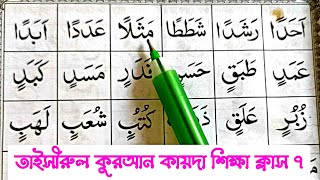 اَحَدًا رَشَدًا شَطَطًا مَثَلًا عَدَدًا اَبَدًا
عَمَدٍ طَبَقٍ قَدَرٍ مَسَدٍ كَبَدٍ
زُبُرٍ عَلَقٍ كُتُبٌ شُعَبٍ لَهَبٍ
তাইসীরুল কুরআন কায়দা শিক্ষা ক্লাস ৭